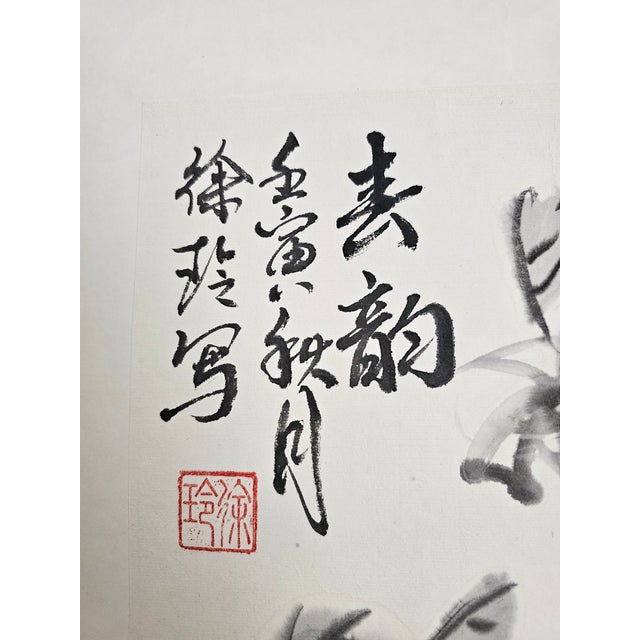 春韵
壬寅秋月
徐玲写
徐玲